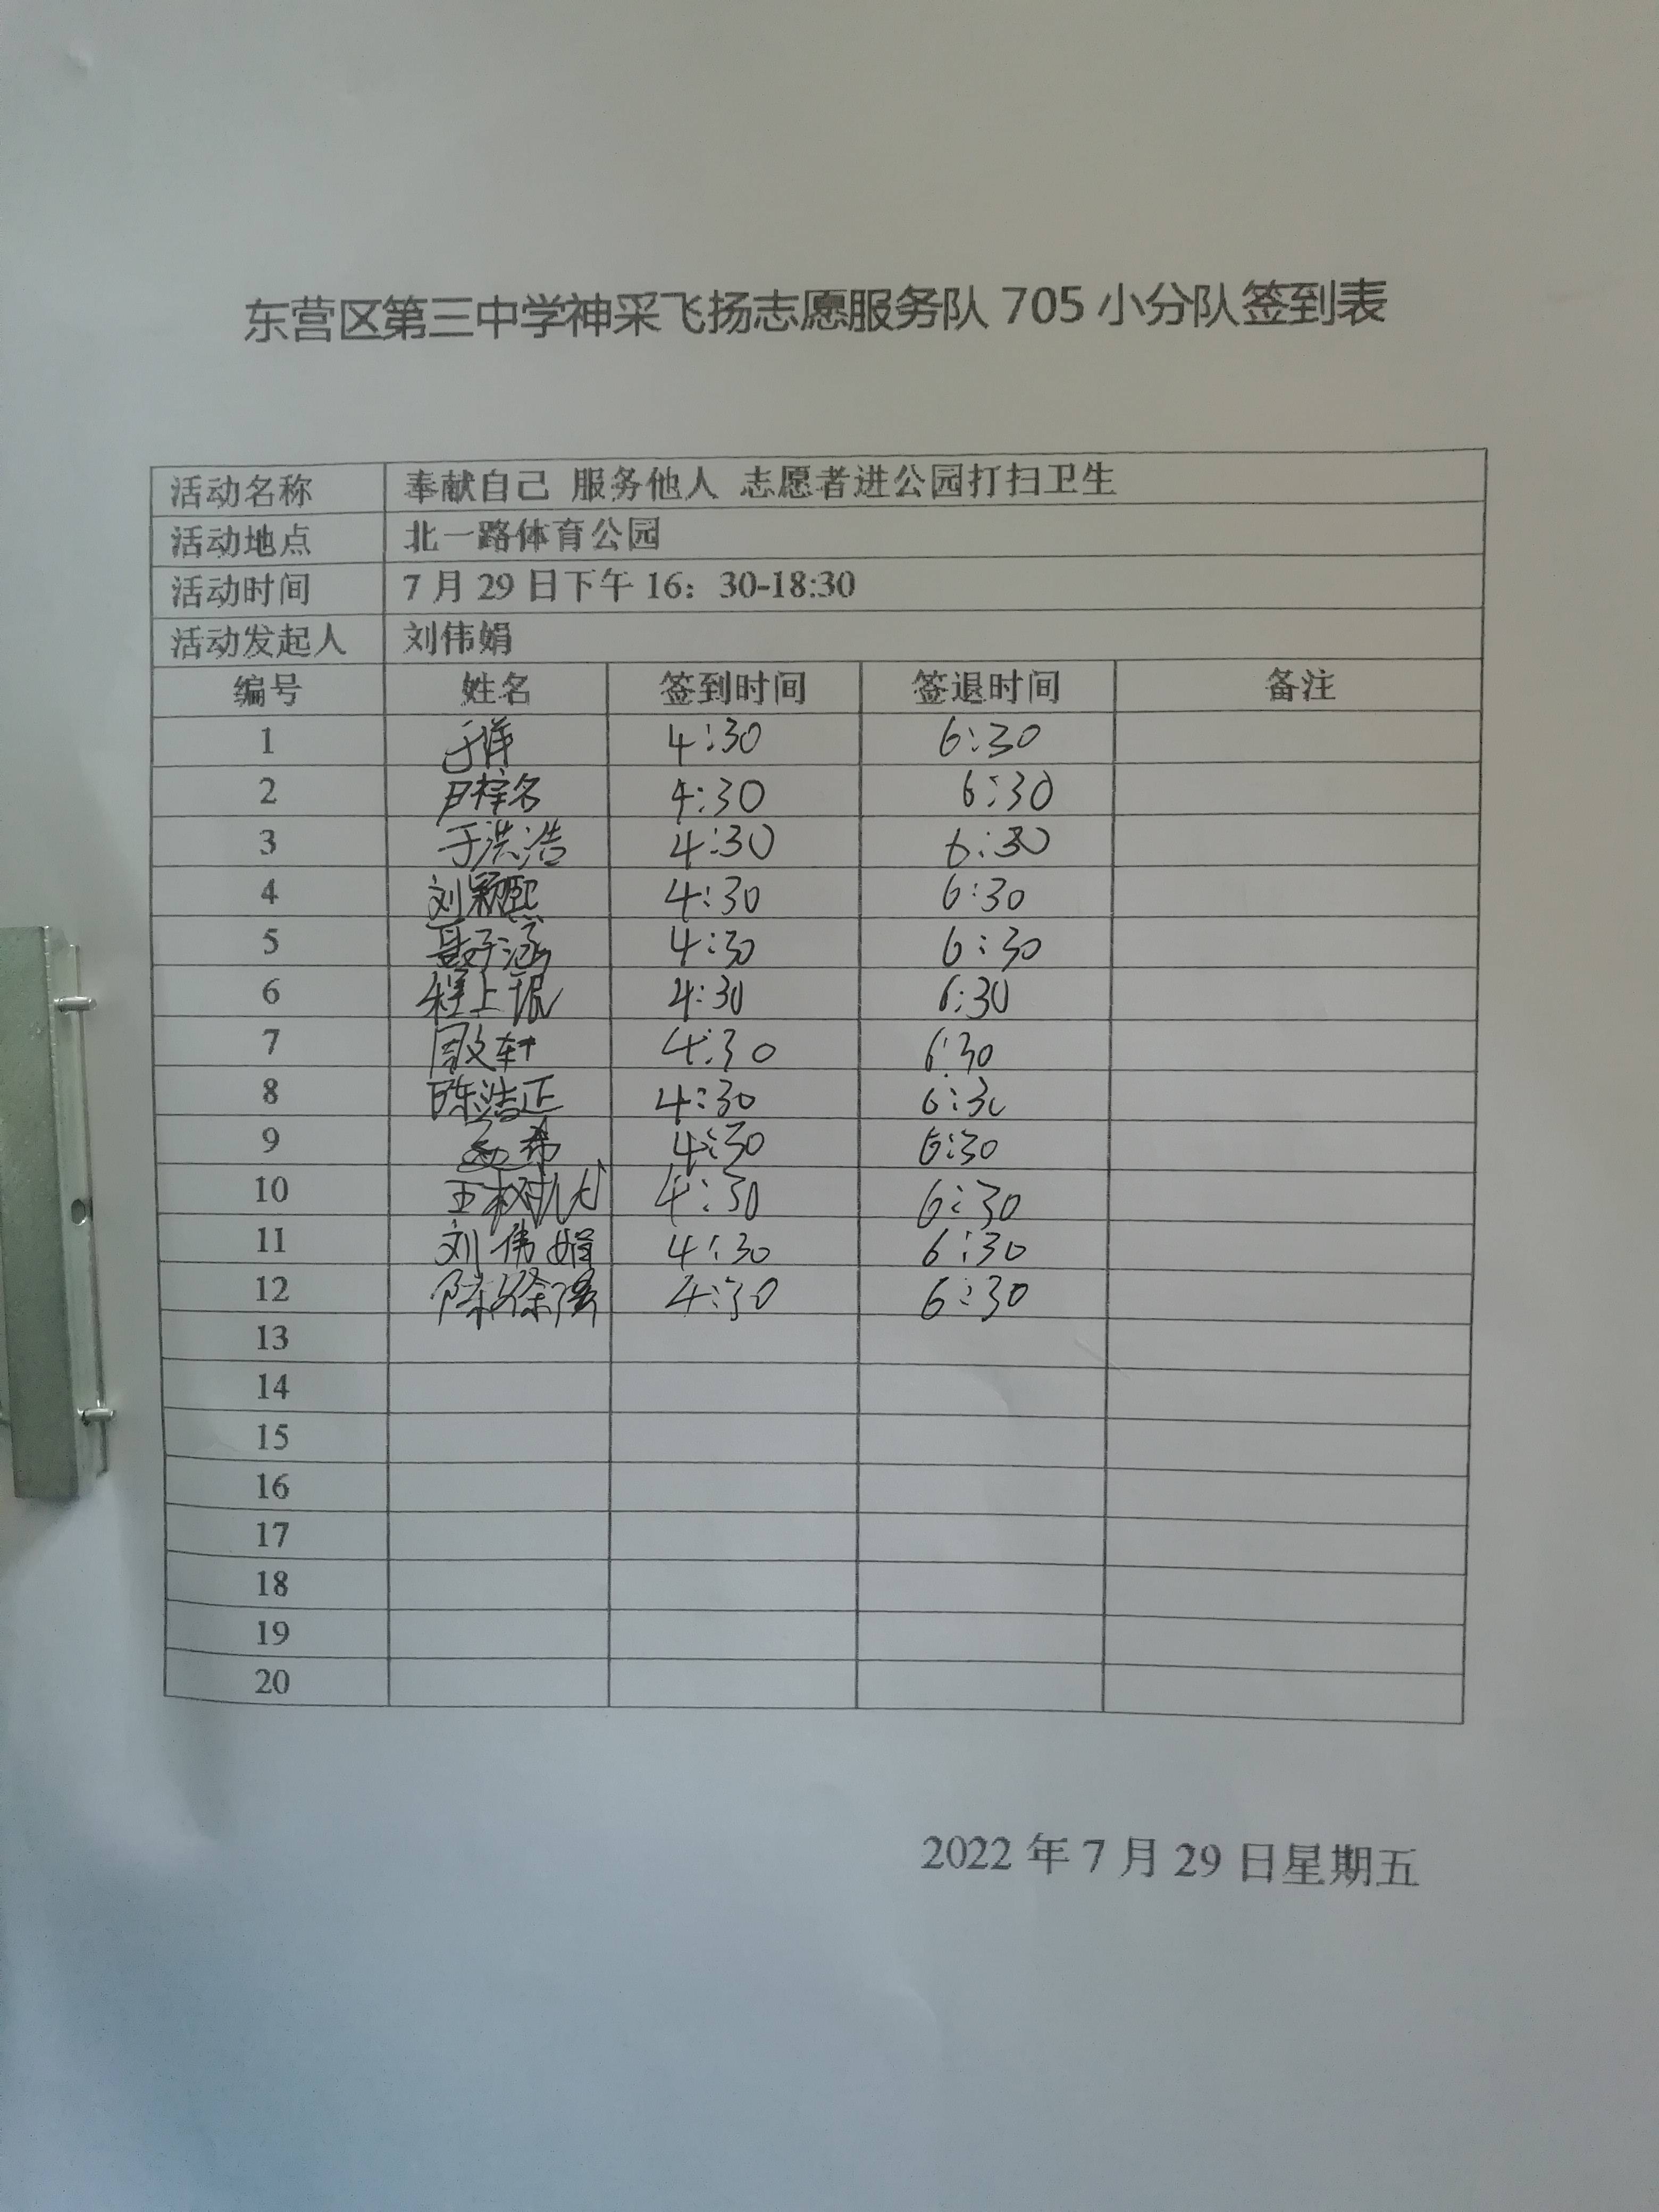 东营区第三中学神采飞扬志愿服务队 705 小分队签到表
活动名称 奉献自己 服务他人 志愿者进公园打扫卫生
活动地点 北一路体育公园
活动时间 7 月 29 日下午 16：30-18:30
活动发起人 刘伟娟
编号 姓名 签到时间 签退时间 备注
1 于洋 4:30 6:30
2 4:30 6:30
3 于洪浩 4:30 6:30
4 刘颖熙 4:30 6:30
5 聂子涵 4:30 6:30
6 4:30 6:30
7 4:30 6:30
8 陈浩正 4:30 6:30
9 4:30 6:30
10 4:30 6:30
11 刘伟娟 4:30 6:30
12 4:30 6:30
13
14
15
16
17
18
19
20
2022 年 7 月 29 日星期五